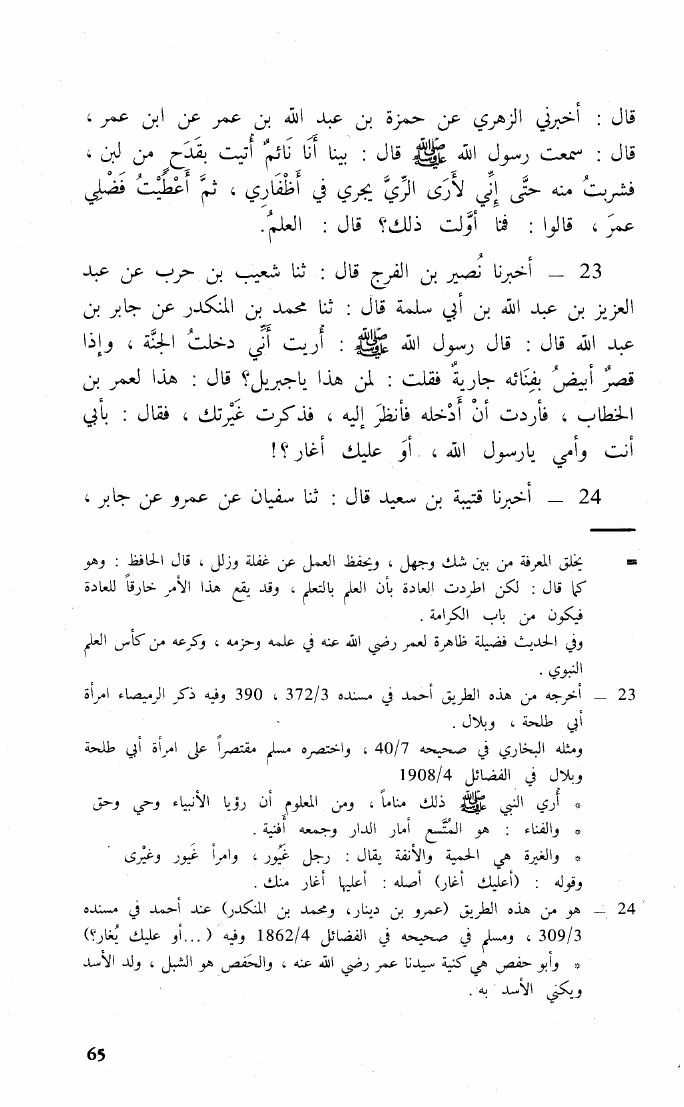 قال : أخبرني الزهري عن حمزة بن عبد الله بن عمر عن ابن عمر ،
قال : سمعت رسول الله ﷺ قال : بينا أَنَا نَائمٌ أُتيت بقَدَحٍ من لبن ،
فشربتُ منه حتَّى إِنِّي لأَرَى الرِّيَّ يجري في أَظْفَارِي ، ثمَّ أَعْطَيْتُ فَضْلِي
عمرَ ، قالوا : فما أوَّلت ذلك؟ قال : العلمُ.
23 ـ أخبرنا نُصير بن الفرج قال : ثنا شعيب بن حرب عن عبد
العزيز بن عبد الله بن أبي سلمة قال : ثنا محمد بن المنكدر عن جابر بن
عبد الله قال : قال رسول الله ﷺ : أُريت أَنِّي دخلتُ الجنَّة ، وإذا
قصرٌ أبيضُ بفِنَائه جاريةٌ فقلت : لمن هذا ياجبريل؟ قال : هذا لعمر بن
الخطاب ، فأردت أنْ أَدْخله فأَنظرَ إليه ، فذكرت غَيْرتك ، فقال : بأبي
أنت وأمي يارسول الله ، أوَ عليك أغار ؟!
24 ـ أخبرنا قتيبة بن سعيد قال : ثنا سفيان عن عمرو عن جابر ،
= يخلق المعرفة من بين شك وجهل ، ويحفظ العمل عن غفلة وزلل ، قال الحافظ : وهو
كما قال : لكن اطردت العادة بأن العلم بالتعلم ، وقد يقع هذا الأمر خارقاً للعادة
فيكون من باب الكرامة .
وفي الحديث فضيلة ظاهرة لعمر رضي الله عنه في علمه وحزمه ، وكرعه من كأس العلم
النبوي .
23 ـ أخرجه من هذه الطريق أحمد في مسنده 372/3 ، 390 وفيه ذكر الرميصاء امرأة
أبي طلحة ، وبلال .
ومثله البخاري في صحيحه 40/7 ، واختصره مسلم مقتصراً على امرأة أبي طلحة
وبلال في الفضائل 1908/4
* أُري النبي ﷺ ذلك مناماً ، ومن المعلوم أن رؤيا الأنبياء وحي وحق
* والفناء : هو المُتَّسع أمار الدار وجمعه أفنية .
* والغيرة هي الحمية والأنفة يقال : رجل غَيُور ، وامرأ غيور وغَيْرى
وقوله : (أعليك أغار) أصله : أعليها أغار منك .
24 ـ هو من هذه الطريق (عمرو بن دينار، ومحمد بن المنكدر) عند أحمد في مسنده
309/3 ، ومسلم في صحيحه في الفضائل 1862/4 وفيه (...أو عليك يُغار؟)
* وأبو حفص هي كنية سيدنا عمر رضي الله عنه ، والحَفص هو الشبل ، ولد الأسد
ويكني الأسد به .
65